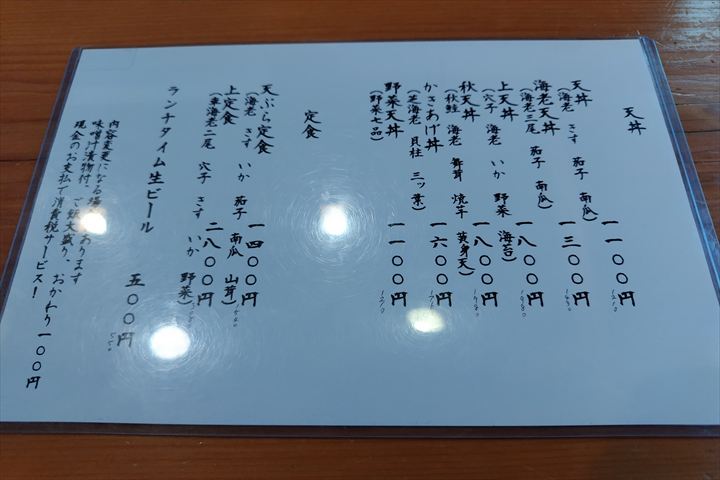 天丼
天丼 一一〇〇円 1210
(海老 きす 茄子 南瓜)
海老天丼 一三〇〇円 1430
(海老三尾 茄子 南瓜)
上天丼 一八〇〇円 1980
(穴子 海老 いか 野菜 海苔)
秋天丼 一八〇〇円 1980
(秋鮭 海老 舞茸 焼芋 黄身天)
かきあげ丼 一六〇〇円 1760
(芝海老 貝柱 三ッ葉)
野菜天丼 一一〇〇円 1210
(野菜七品)
定食
天ぷら定食 一四〇〇円 1540
(海老 きす いか 茄子 南瓜 山茸)
上定食 二八〇〇円
(車海老二尾 穴子 きす いか 野菜)
ランチタイム生ビール 五〇〇円 550
内容変更になる場 あります
味噌汁漬物付。ご飯大盛り、おかわり一〇〇円
現金のお支払で消費税サービス！